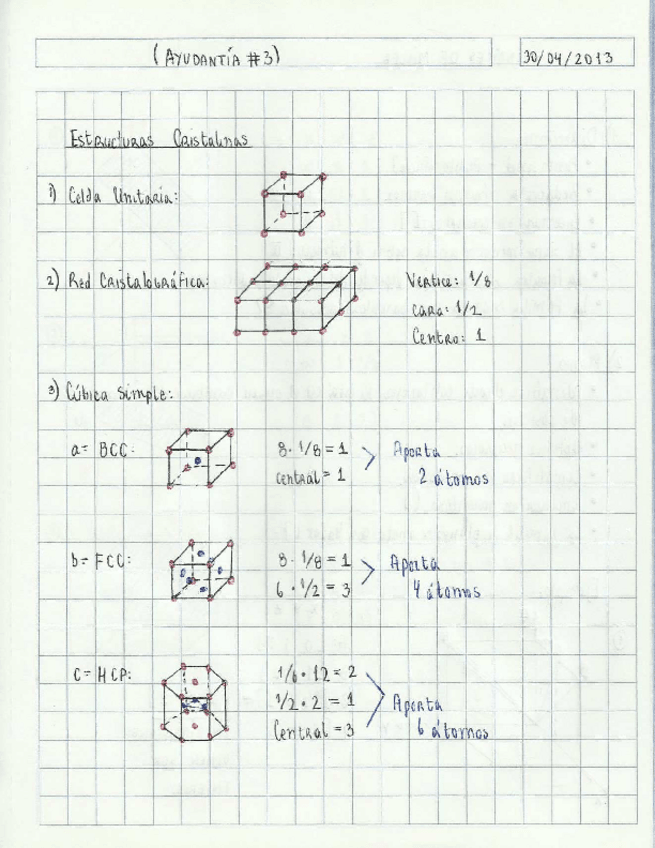 (AYUDANTÍA #3)
30/04/2013
Estructuras Cristalinas
1) Celda Unitaria:
2) Red Cristalográfica:
Vértice: 1/8
cara: 1/2
Centro: 1
3) Cúbica Simple:
a= BCC:
8 · 1/8 = 1
central = 1
Aporta
2 átomos
b= FCC:
8 · 1/8 = 1
6 · 1/2 = 3
Aporta
4 átomos
c= HCP:
1/6 · 12 = 2
1/2 · 2 = 1
Central = 3
Aporta
6 átomos